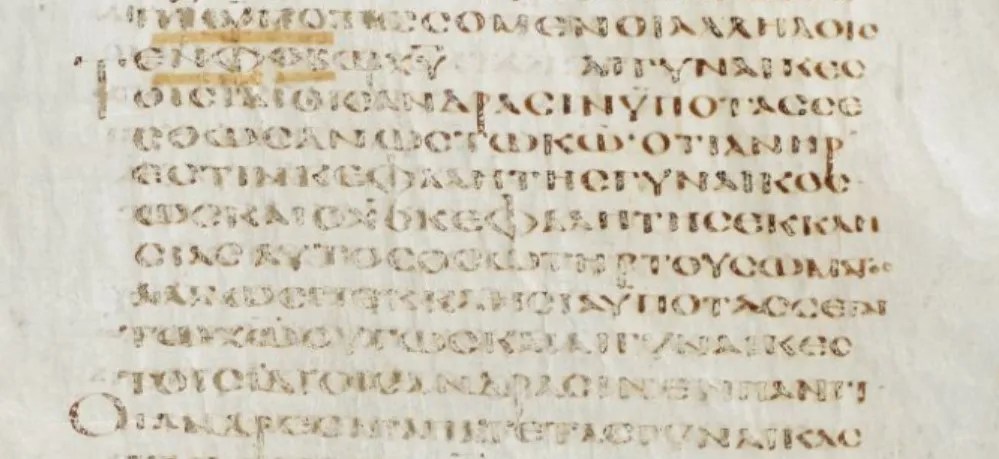 ϹΟΜΕΝΟΙΑΛΛΗΛΟΙϹ
ΕΝΦΟΒΩΧ̅Υ̅ ΑΙΓΥΝΑΙΚΕϹ
ΤΟΙϹΙΔΙΟΙϹΑΝΔΡΑϹΙΝΫΠΟΤΑϹϹΕ
ϹΘΩϹΑΝΩϹΤΩΚ̅Ω̅·ΟΤΙΑΝΗΡ
ΕϹΤΙΝΚΕΦΑΛΗΤΗϹΓΥΝΑΙΚΟϹ
ΩϹΚΑΙΟΧ̅Ϲ̅ΚΕΦΑΛΗΤΗϹΕΚΚΛΗ
ϹΙΑϹΑΥΤΟϹΟϹΩΤΗΡΤΟΥϹΩΜΑΤΟϹ
ΑΛΛΑΩϹΗΕΚΚΛΗϹΙΑΫΠΟΤΑϹϹΕΤΑΙ
ΤΩΧ̅Ω̅ΟΥΤΩϹΚΑΙΑΙΓΥΝΑΙΚΕϹ
ΤΟΙϹΙΔΙΟΙϹΑΝΔΡΑϹΙΝΕΝΠΑΝΤΙ
ΟΙΑΝΔΡΕϹΑΓΑΠΑΤΕΤΑϹΓΥΝΑΙΚΑϹ